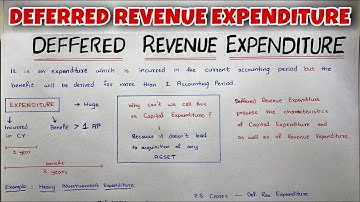 DEFERRED REVENUE EXPENDITURE
DEFFERED REVENUE EXPENDITURE
It is an expenditure which is incurred in the current accounting period but the
benefit will be derived for more than 1 Accounting Period.
EXPENDITURE → Huge
Incurred in CY
Benefit > 1 AP
1 year
benefit
years
Why can't we call this
as Capital Expenditure ?
Because it doesn't lead
to acquisition of any
ASSET
Deffered Revenue Expenditure
possess the characteristics
of Capital Expenditure and
as well as of Revenue Expenditure
Example : Heavy Advertisement Expenditure
25 Crores → Def. Rev Expenditure